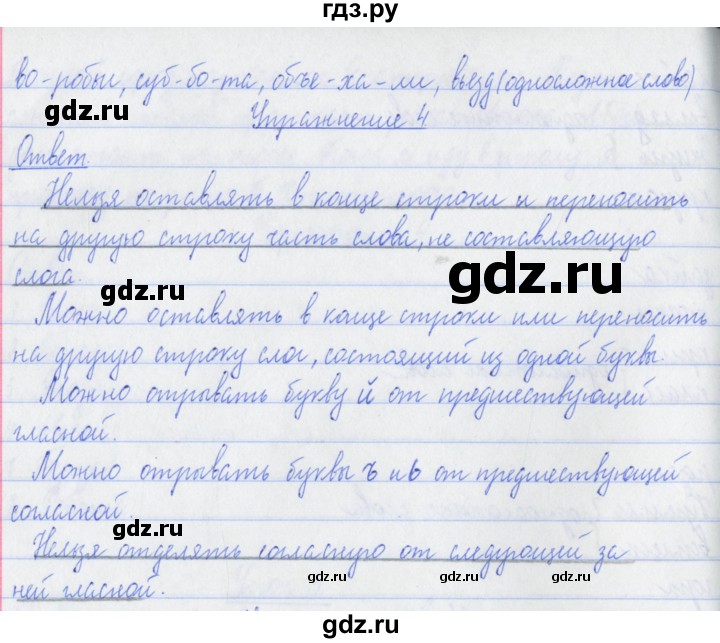 гдз.ру
во-робьи, суб-бо-та, объе-ха-ли, въезд (односложное слово)
gdz.ru gdz.ru
Упражнение 4
Ответ.
Нельзя оставлять в конце строки и переносить
на другую строку часть слова, не составляющую
слога.
gdz.ru gdz.ru
Можно оставлять в конце строки или переносить
на другую строку слог, состоящий из одной буквы.
Можно отрывать букву й от предшествующей
гласной.
gdz.ru gdz.ru
Можно отрывать буквы ъ и ь от предшествующей
согласной.
gdz.ru
Нельзя отделять согласную от следующей за
ней гласной.
gdz.ru gdz.ru gdz.ru